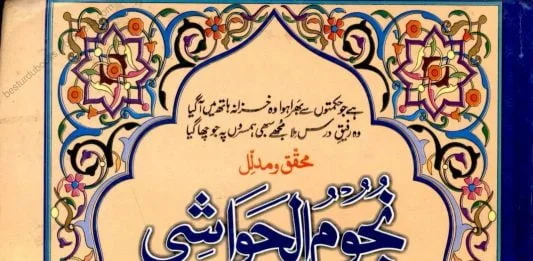 ہے جو حکمتوں سے بھرا ہوا وہ خزانہ ہاتھ میں آ گیا
وہ رفیقِ درس ملا مجھے سبھی ہمسروں پہ جو چھا گیا
محقق و مدلل
نُجُومُ الحَوَاشِی